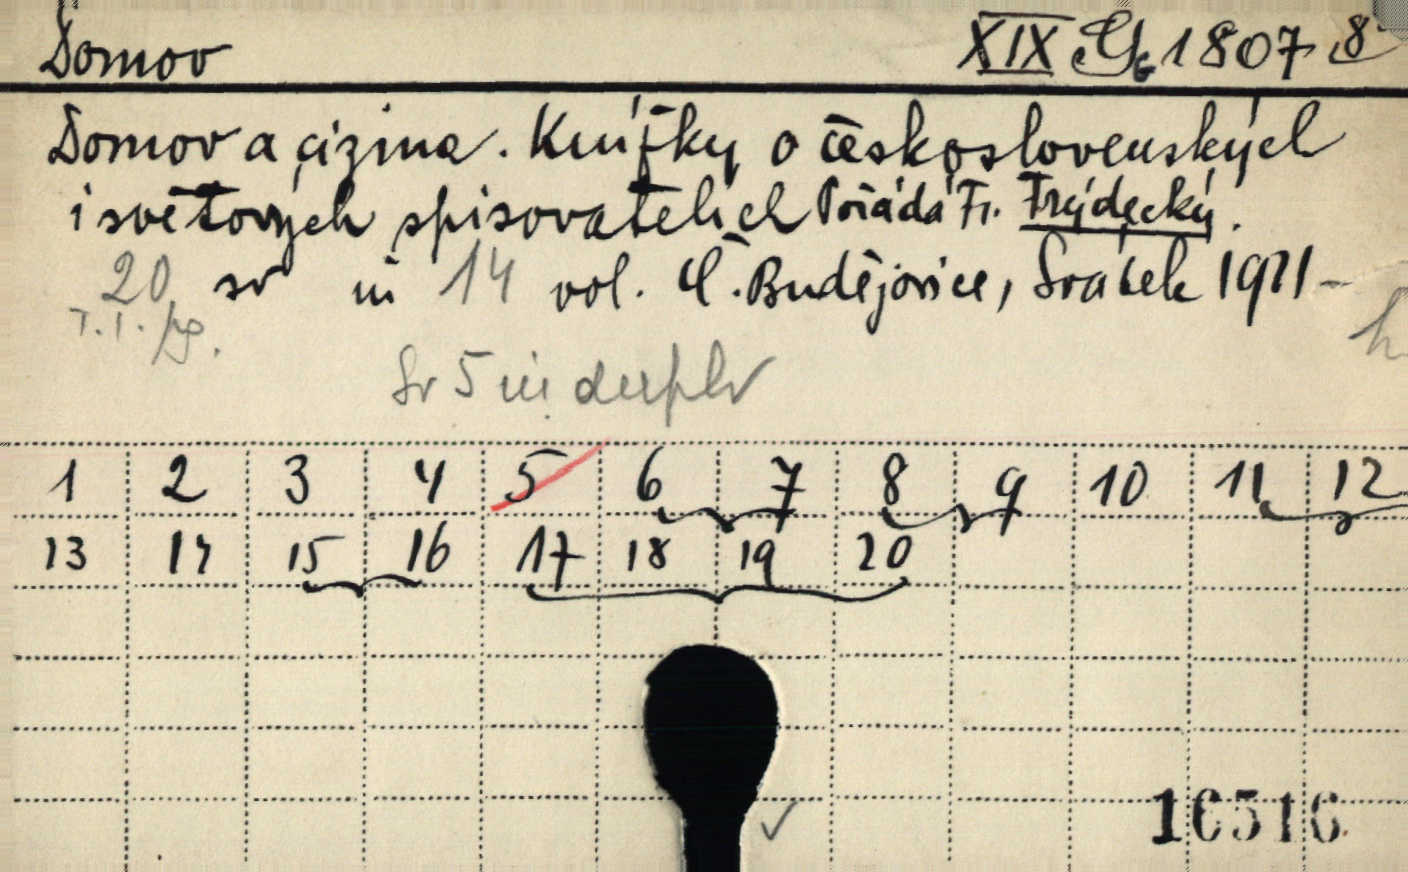 Domov XIX G 1807 8°
Domov a cizina. Knížky o československých
i světových spisovatelích Pořádá Fr. Frýdecký.
20 sv in 14 vol. Č. Budějovice, Svátek 1921-
T. I. pg.
Sv 5 in duplo
1 2 3 4 5 6 7 8 9 10 11 12
13 14 15 16 17 18 19 20
16516